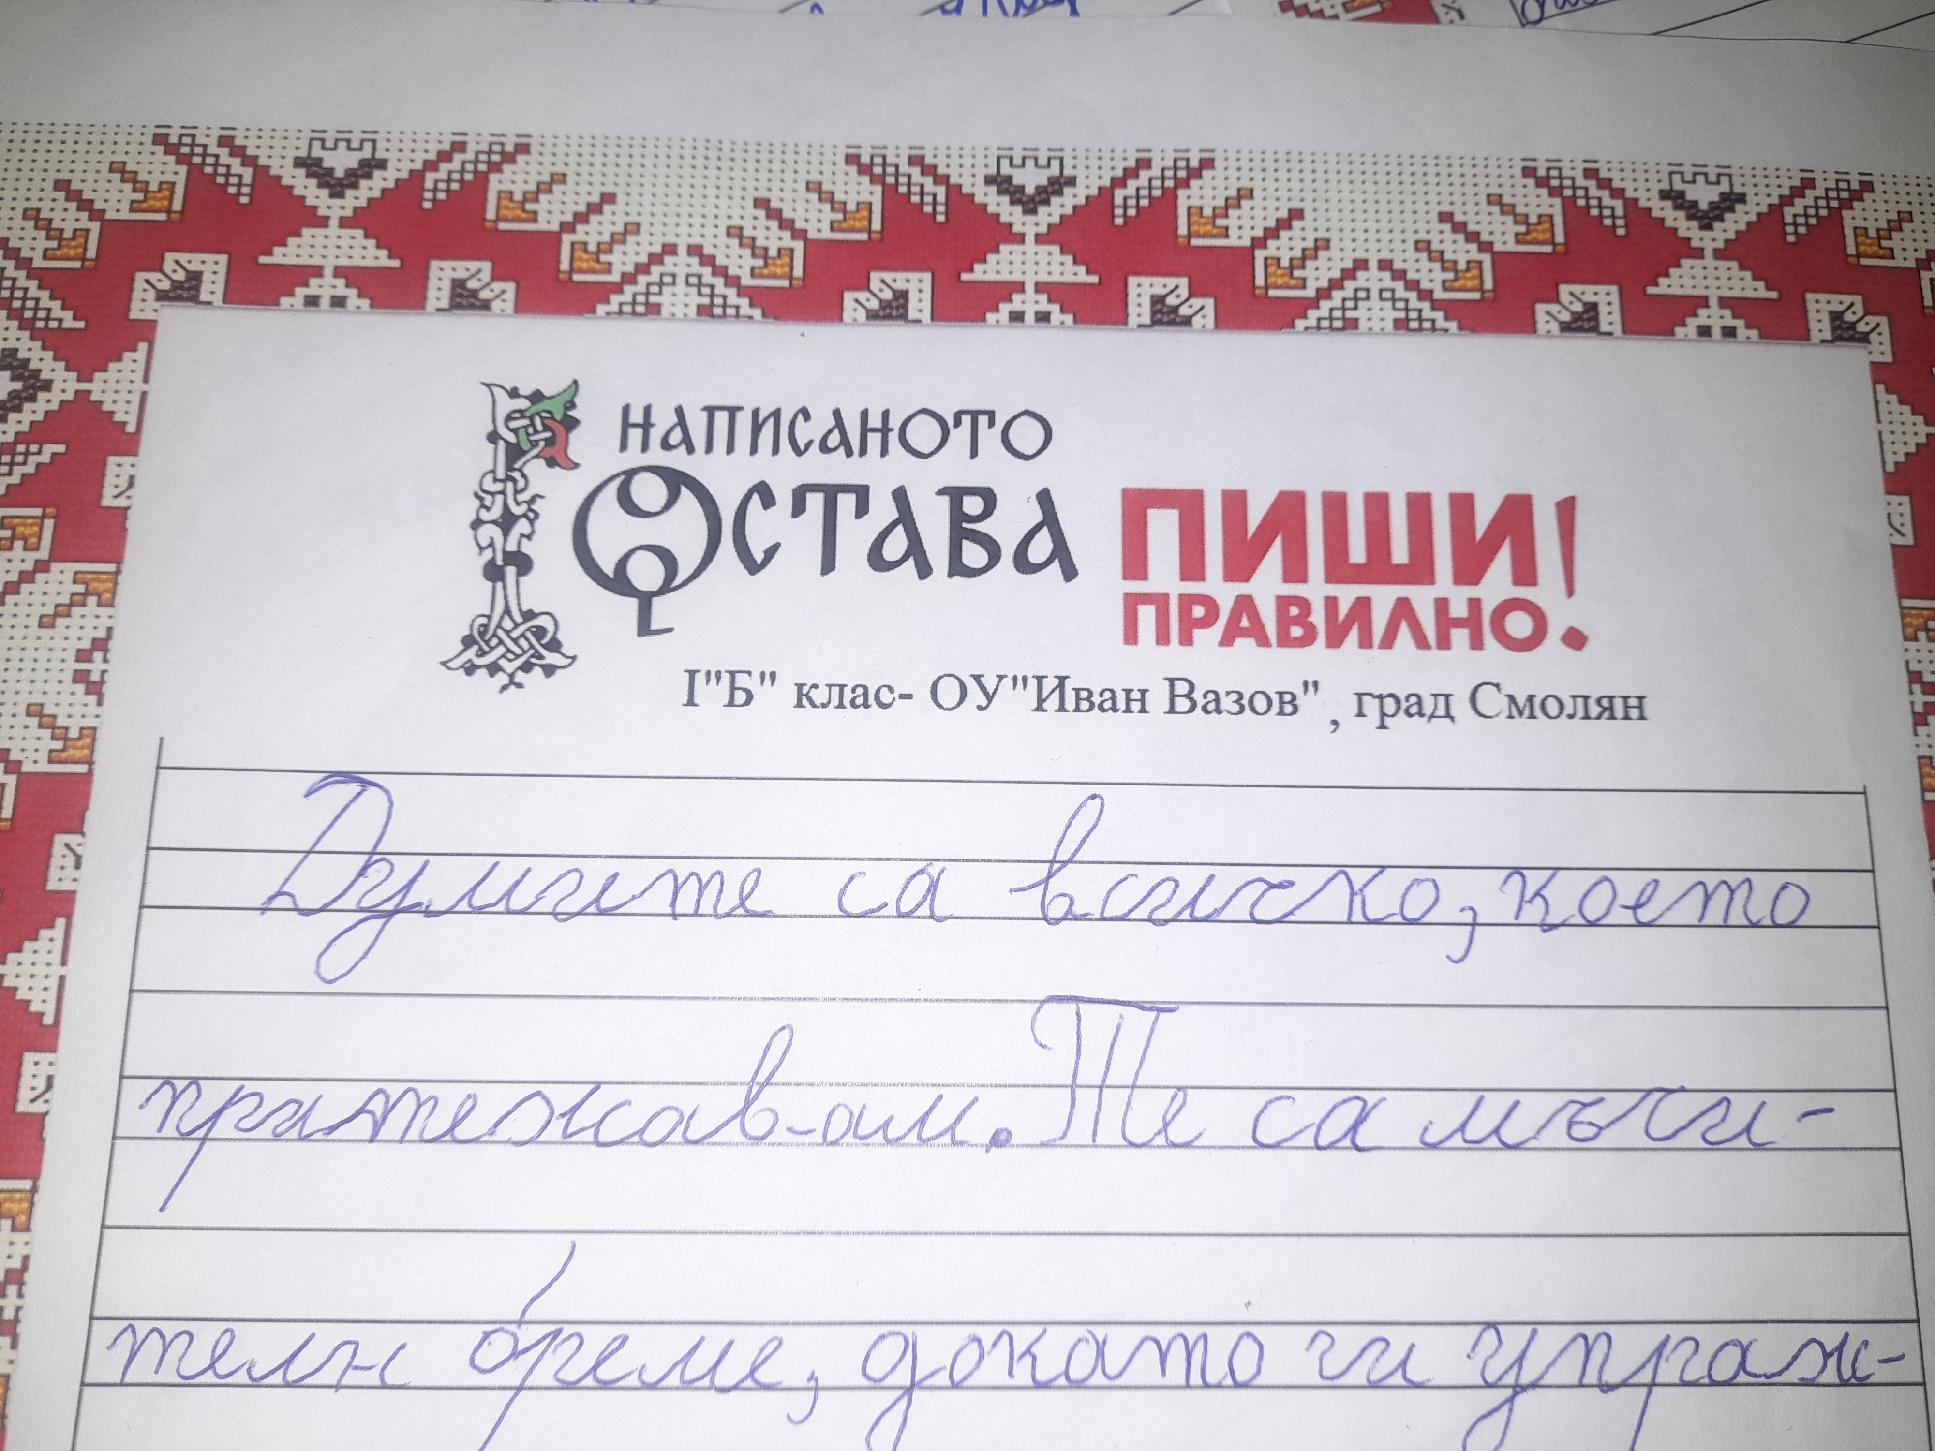 НАПИСАНОТО
ОСТАВА ПИШИ!
ПРАВИЛНО.
I"Б" клас- ОУ"Иван Вазов", град Смолян
Думите са всичко, което
притежавам. Те са мъчи-
телн бреме, докато ги упраж-